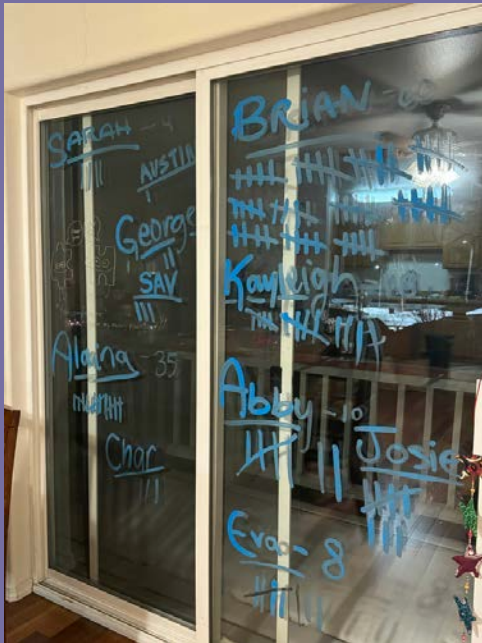 SARAH - 4
AUSTIN
George
SAV
Alaina - 35
Char
BRIAN - 60
Kayleigh
Abby - 10
Josie
Evan - 8